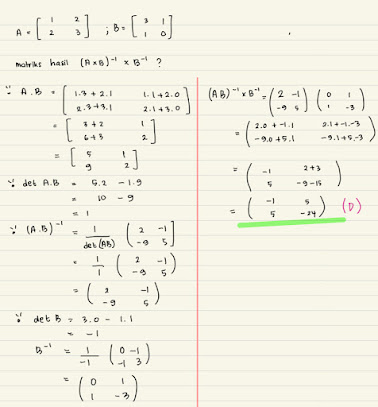 A = [ 1 2 ; B = [ 3 1
2 3 ] 1 0 ]
matriks hasil (A × B)⁻¹ × B⁻¹ ?
∵ A . B = [ 1.3 + 2.1 1.1 + 2.0
2.3 + 3.1 2.1 + 3.0 ]
= [ 3 + 2 1
6 + 3 2 ]
= [ 5 1
9 2 ]
∵ det A.B = 5.2 - 1.9
= 10 - 9
= 1
∵ (A.B)⁻¹ = 1/det(AB) ( 2 -1
-9 5 ]
= 1/1 ( 2 -1
-9 5 )
= ( 2 -1
-9 5 )
∵ det B = 3.0 - 1.1
= -1
B⁻¹ = 1/-1 ( 0 -1
-1 3 )
= ( 0 1
1 -3 )
(AB)⁻¹ × B⁻¹ = ( 2 -1 ) ( 0 1
-9 5 ) 1 -3 )
= ( 2.0 + -1.1 2.1 + -1.-3
-9.0 + 5.1 -9.1 + 5.-3 )
= ( -1 2+3
5 -9-15 )
= ( -1 5
5 -24 ) (D)